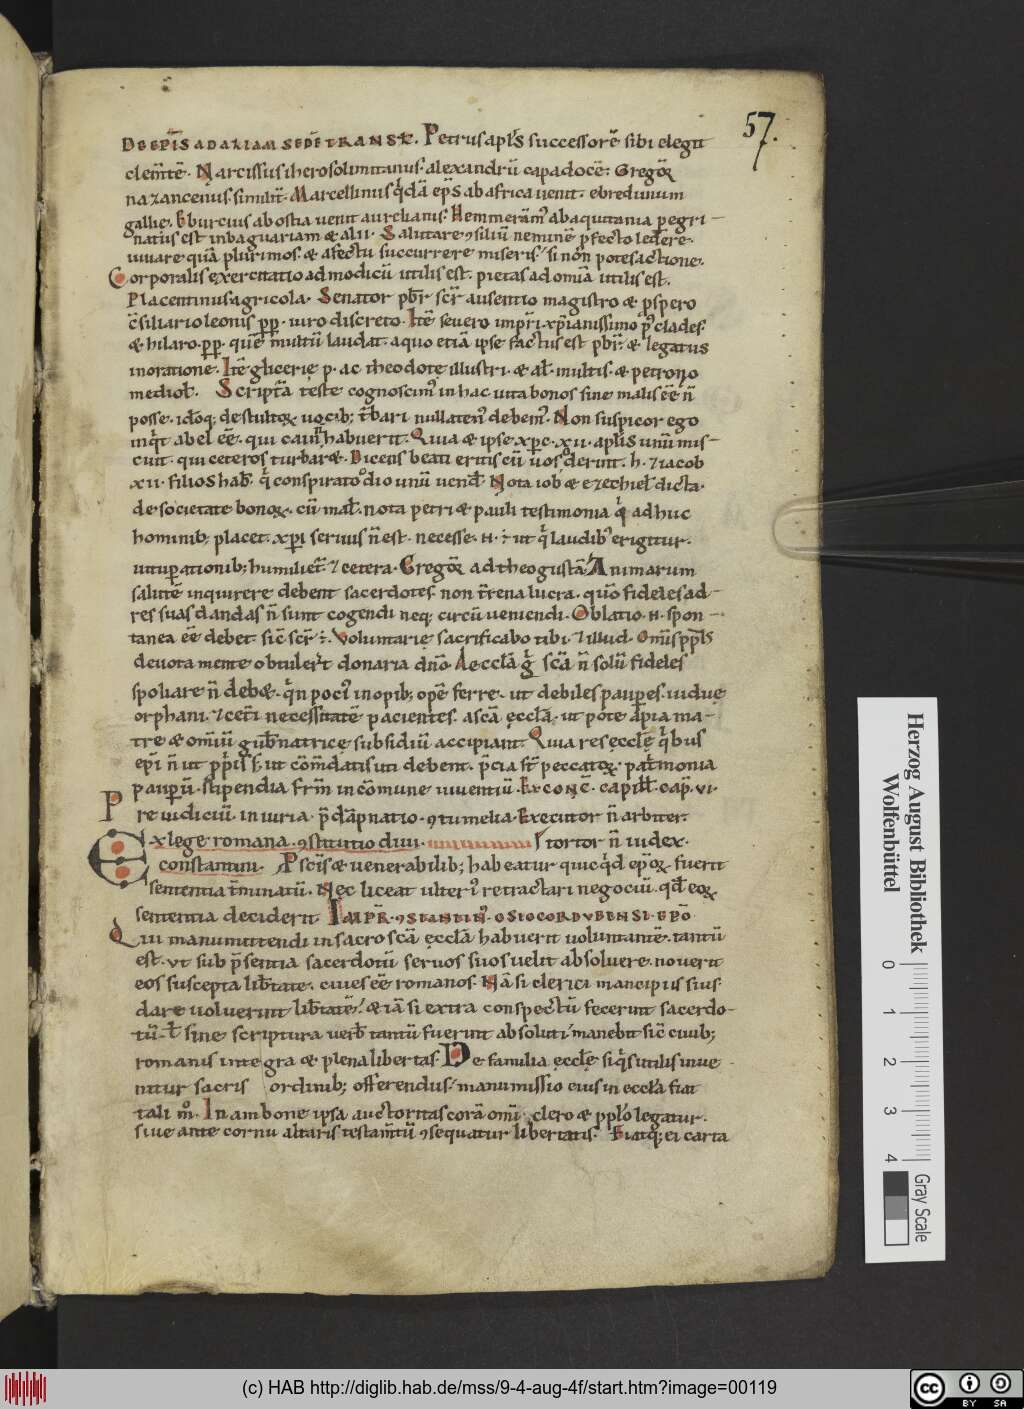 57.
De epis ad aliam sedē transl̄. Petrus apl's successorē sibi elegit
clem̄tē. Narcissus iherosolimitanus. alexandrū capadocē. Gregor̄
nazancenus. similit̄. Marcellinus q̇dā ep̄s ab africa uenit. ebredunum
gallię. Eburcius ab ostia uenit aurelianis. Hemmeram̄ ab aquitania pegri-
natus est in baguariam & alii. Salutare ꝯsiliū neminē p̄fecto ledere.
uiuare quā plurimos. & afectu succurrere miseris / si non potes actione.
Corporalis exercitatio ad modicū utilis est. pietas ad omīa utilis est.
Placentinus agricola. Senator pbr̄. scr̄ ausentio magistro & ꝓspero
c̄siliario leonis pp̄. uiro discreto. Itē seuero impr̄i. xp̄ianissimo p̄ clades.
& hilaro. pp̄. quē multū laudat. a quo etiā ipse factus est pbr̄. & legatus
in oratione. Itē glicerię p. ac theodote illustri. & al. multis. & petronio
mediol̄. Scriptā teste cognoscim᷒ in hac uita bonos sine malis eē n̄
posse. idoq; de stultoꝝ uocib; t̄bari nullaten᷒ debem᷒. Non suspicor ego
inq̄t abel eē. qui cain n̄ habuerit. Quia & ipse xp̄c. xii. apl'is unū mis-
cuit. qui ceteros turbar&. Dicens beati eritis cū uos oderint. h. & iacob
xii. filios hab̄. q̇ conspirato odio unū uend̄. Nota iob & ezechiel dicta.
de societate bonoꝝ. cū mal̄. nota petri & pauli testimonia q̇ adhuc
hominib; placet. xp̄i seruus n̄ est. necesse. H. ÷ ut q̇ laudib᷒ erigitur.
uitupationib; humiliet̄. & cetera. Gregor̄ ad theogustā. Animarum
salutē inquirere debent sacerdotes. non t̄rena lucra. quo fideles ad
res suas dandas n̄ sunt cogendi neq; circūueniendi. Oblatio. H. spon-
tanea eē debet sic̄ scr̄ ÷. Voluntarię sacrificabo tibi. & illud. Om̄is ppl's
deuota mente obtulert donaria dn̄o. Aecclā g̊ scā n̄ solū fideles
spoliare n̄ deb&. q̄n poci᷒ inopib; opē ferre. ut debiles paupes. uiduę
orphani. & cet̄i necessitatē pacientes. a scā ęcclā. ut pote a pia ma-
tre & om̄iū gub̄natricę subsidiū accipiant. Quia res ęcclę q̇bus
ep̄i n̄ ut pp̄iis s; ut cōm̄datis uti debent. p̄cia st̄ peccatoꝝ. pat̄monia
paupū. stipendia fr̄m in cōmune uiuentiū. Ex conc̄. capill̄. cap̄. vi.
Preiudiciū. iniuria. p̄dap̄natio. ꝯtumelia. Executor n̄ arbiter.
Ex lege romana. ꝯstitutio diui tortor n̄ iudex.
constantini. P sc̄is & uenerabilib; habeatur quicq̇d ep̄oꝝ. fuerit
sententia t̄minatū. Nec liceat ulteri᷒ retractari negociū. qd̄ eoꝝ
sententia deciderit. Imp̄r. ꝯstantin᷒. osio cordubensi. ep̄o
Qui manumittendi in sacroscā ęcclā habuerit uoluntantē. tantū
est. ut sub p̄sentia sacerdotū seruos suos uelit absoluere. nouerit
eos suscepta lib̄tate. ciues eē romanos. Nā si clerici mancipiis suis
dare uoluerint lib̄tatē. & iā si extra conspectū fecerint sacerdo-
tū. l̄ sine scriptura uerb̄ tantū fuerint absoluti. manebit sic̄ ciuib;
romanis integra & plena libertas. De familia ęcclę siq̇s utilis inue-
nitur sacris ordinib; offerendus. manumissio eius in eccła fiat
tali m̊. In ambone ipsa auctoritas corā omī clero & ppl̊o legatur.
siue ante cornu altaris testam̄tū ꝯsequatur libertatis. Fiatq; ei carta
Herzog August Bibliothek
Wolfenbüttel
0 1 2 3 4
Gray Scale
(c) HAB http://diglib.hab.de/mss/9-4-aug-4f/start.htm?image=00119
cc BY SA